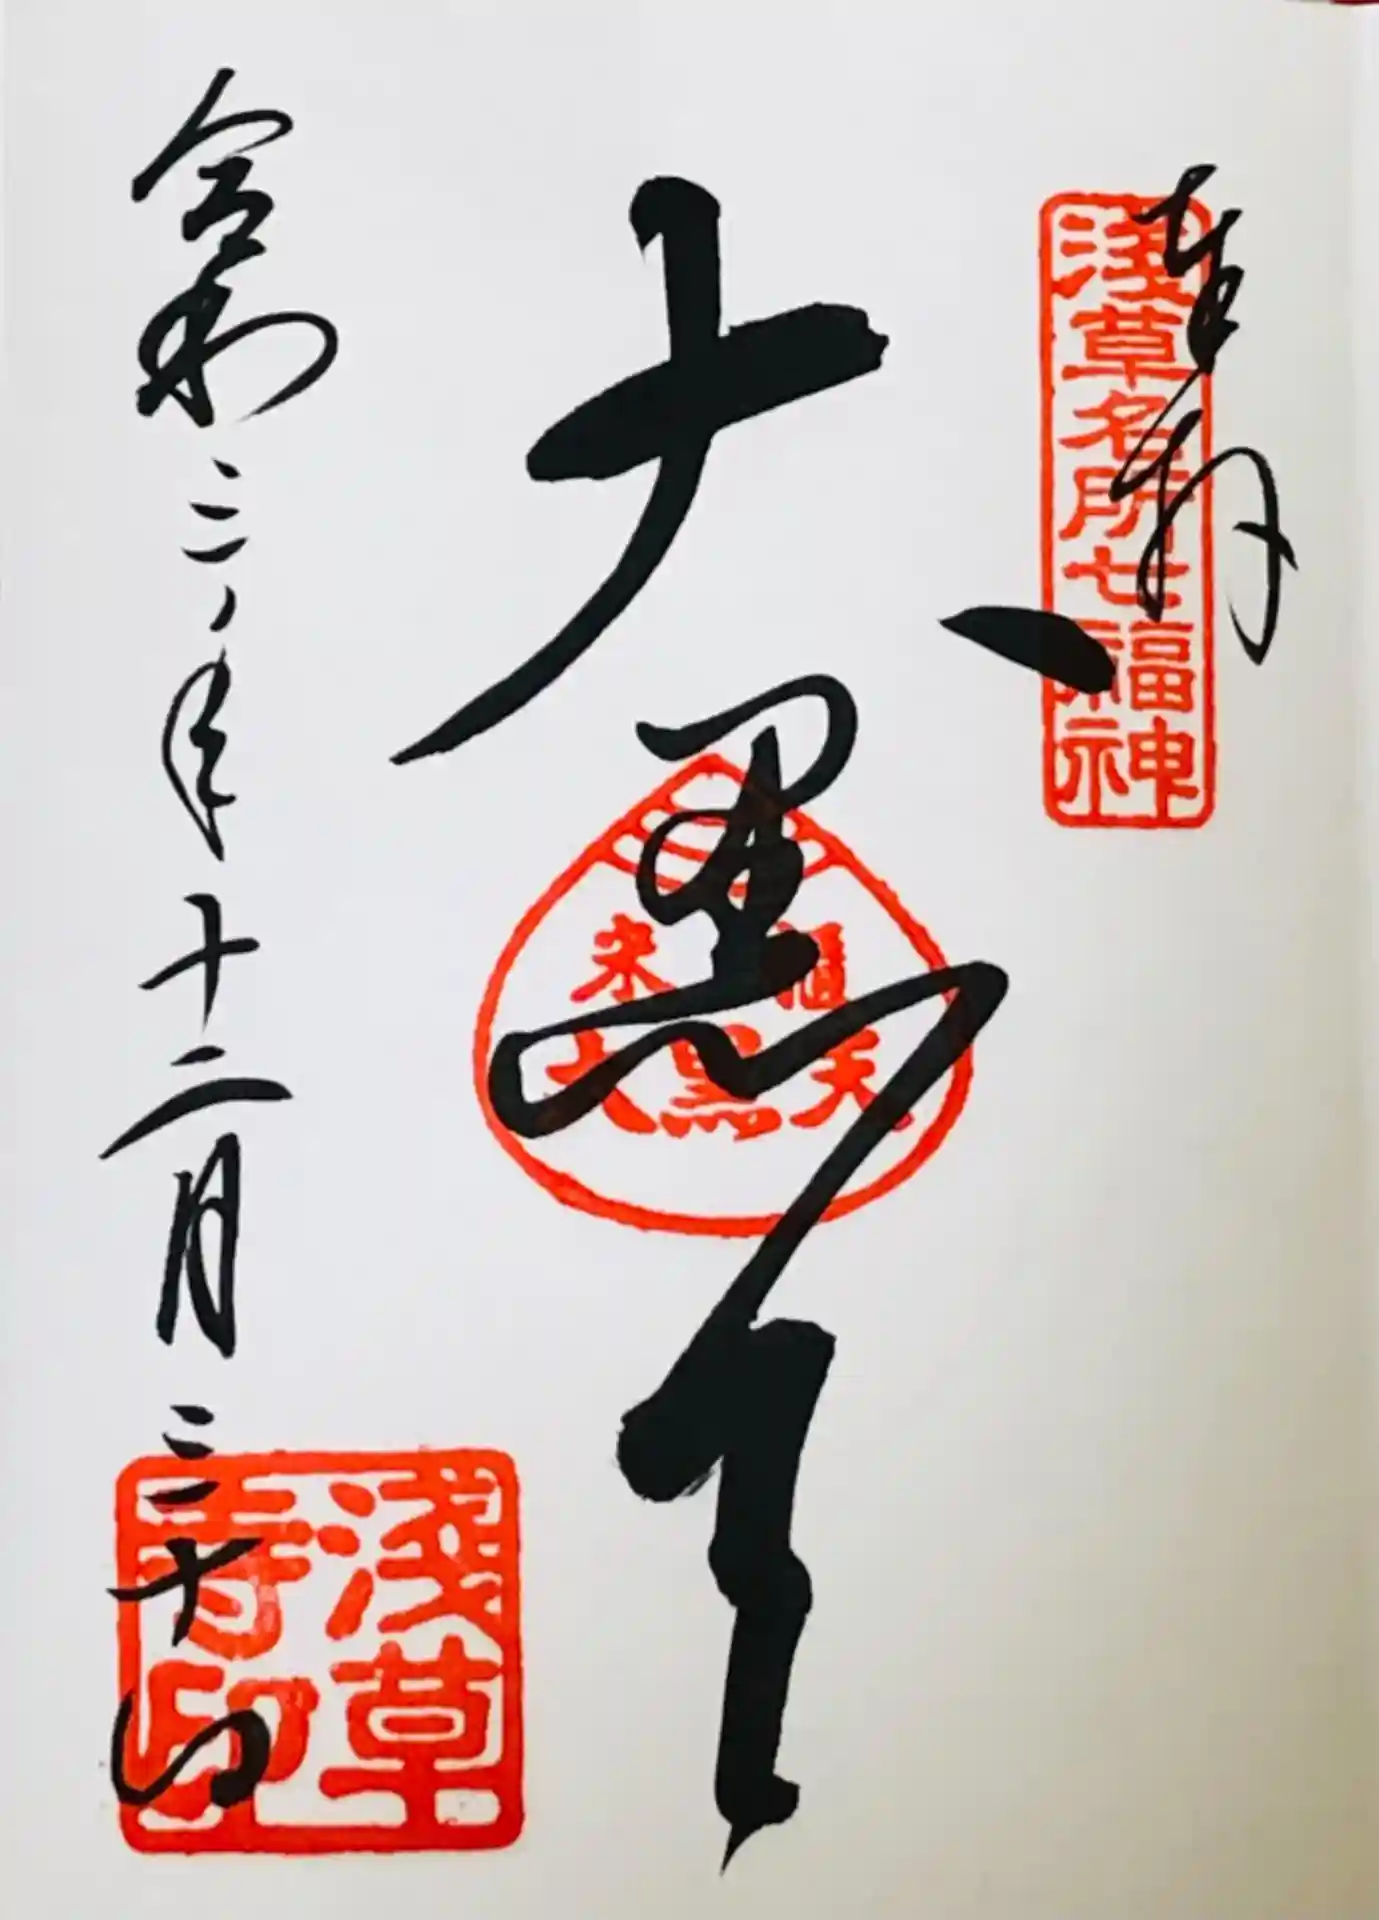 奉拝
浅草名所七福神
大黒天
米櫃
大黒天
令和三年十二月三十日
浅草
寺印